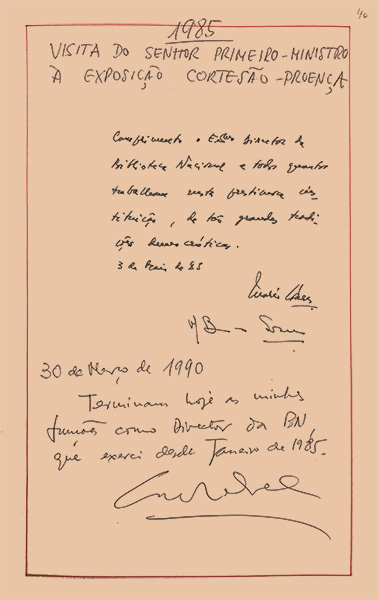 40
1985
VISITA DO SENHOR PRIMEIRO-MINISTRO
À EXPOSIÇÃO CORTESÃO-PROENÇA
Cumprimento o Exmo Director da
Biblioteca Nacional e todos quantos
trabalham nesta prestimosa ins-
tituição, de tão grandes tradi-
ções democráticas.
3 de Maio de 85
Mário Soares
M B Soares
30 de Março de 1990
Terminam hoje as minhas
funções como Director da BN,
que exerci desde Janeiro de 1985.